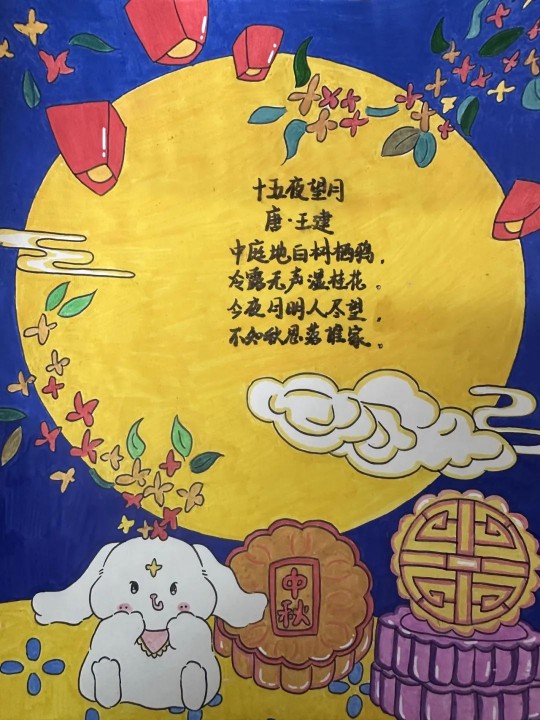 十五夜望月
唐·王建
中庭地白树栖鸦，
冷露无声湿桂花。
今夜月明人尽望，
不知秋思落谁家。
中秋